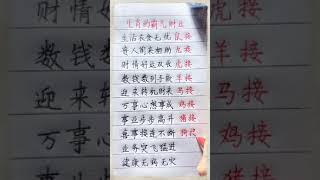 生肖的霸气财业
生活衣食无忧 鼠接
贵人前来相助 龙接
财情好运双收 虎接
数钱数到手软 羊接
迎来转机财来 马接
万事心想事成 鸡接
事业步步高升 猪接
喜事接连不断 狗接
业务突飞猛进
健康无病无灾